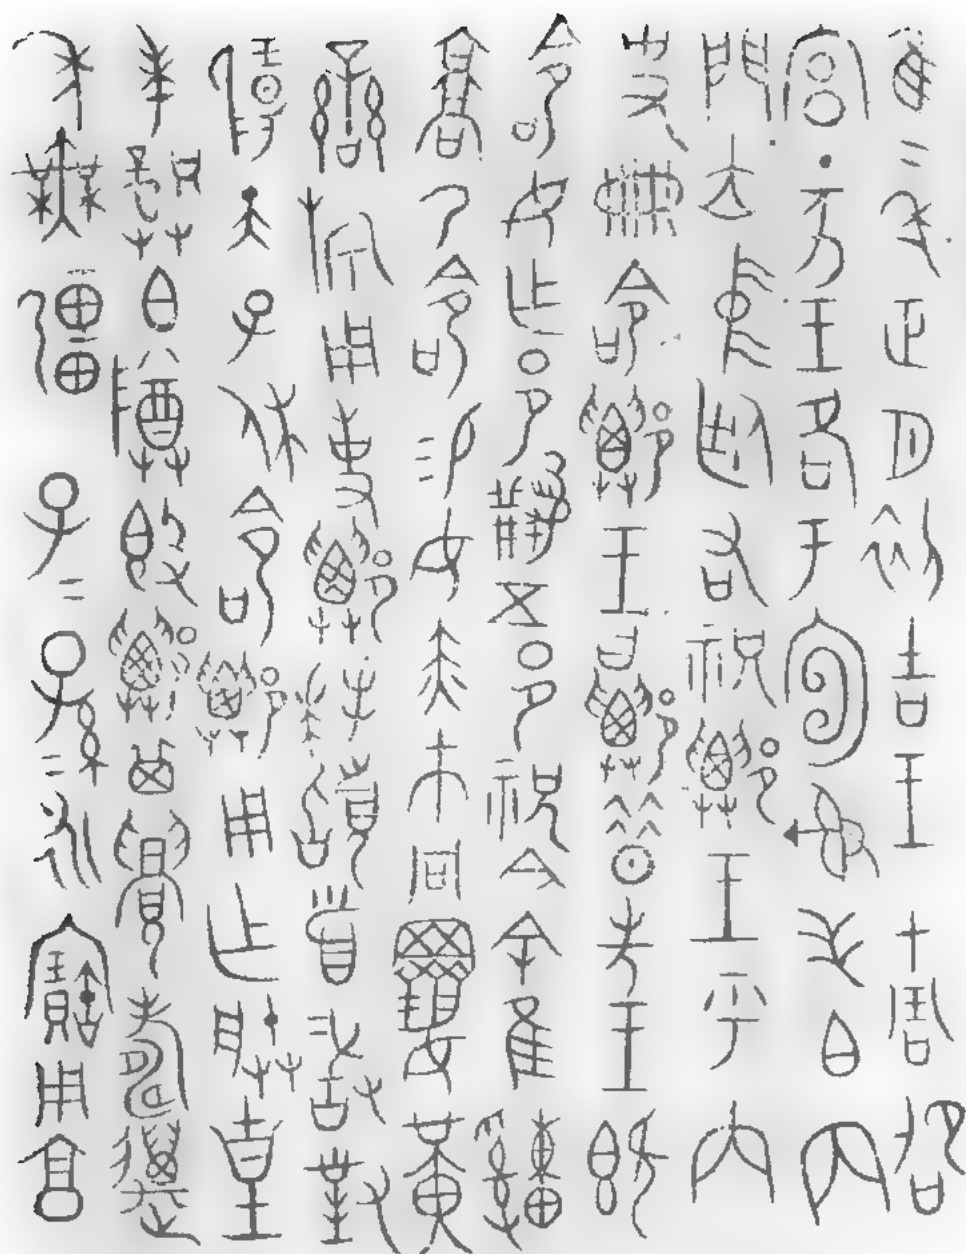 隹二年正月初吉王才周邵
宮丁亥王各于宣射毛白內
門立中廷右祝鄦王乎內
史冊命鄦王曰鄦昔先王既
命女乍邑𤔲五邑祝今余隹𤕌
𩫨乃命易女赤巿冋䙢黃
䜌旂用事鄦拜𩒨首敢對
揚天子休命鄦用乍朕皇
考龏白尊𣪘鄦其眉壽萬
年無彊子二孫二永寶用亯